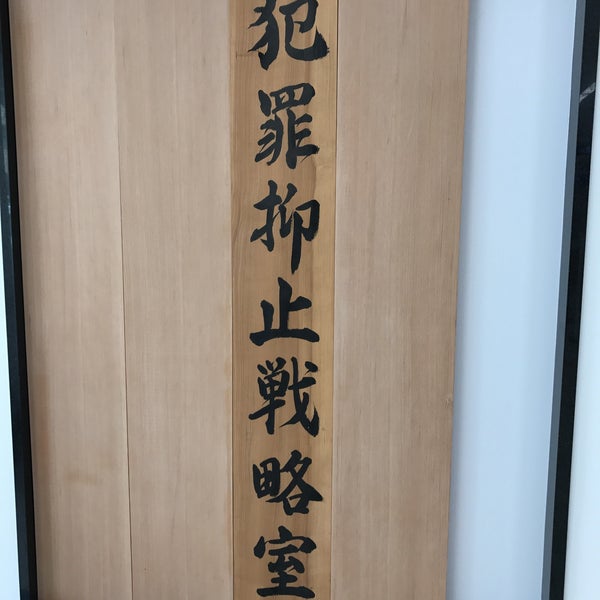 犯罪抑止戦略室